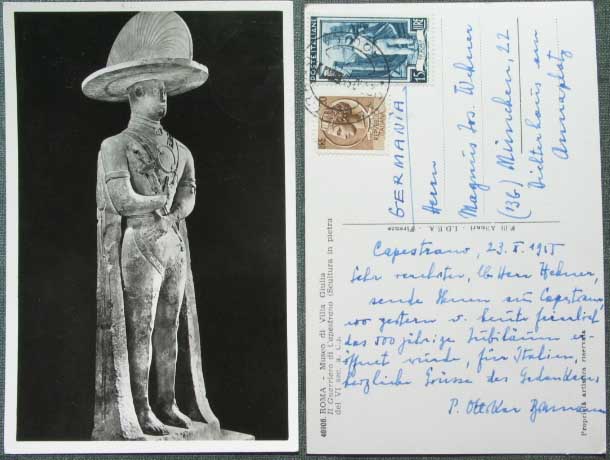 POSTE ITALIANE
15 LIRE
GERMANIA
Herrn
Magnus Jos. Wehner
(13b) München, 22
Annaplatz
F.lli Alinari - I.D.E.A. - Firenze
46906. ROMA - Museo di Villa Giulia
Il Guerriero di Capestrano (Scultura in pietra
del VI sec. a. C.).
Proprietà artistica riservata
Capestrano, 23. X. 1955
Sehr verehrter, lb Herr Wehner,
sende Ihnen aus Capestrano
wo gestern u. heute feierlich
das 500 jährige Jubiläum er-
öffnet wurde, für Italien,
herzliche Grüsse des Gedenkens,
P.